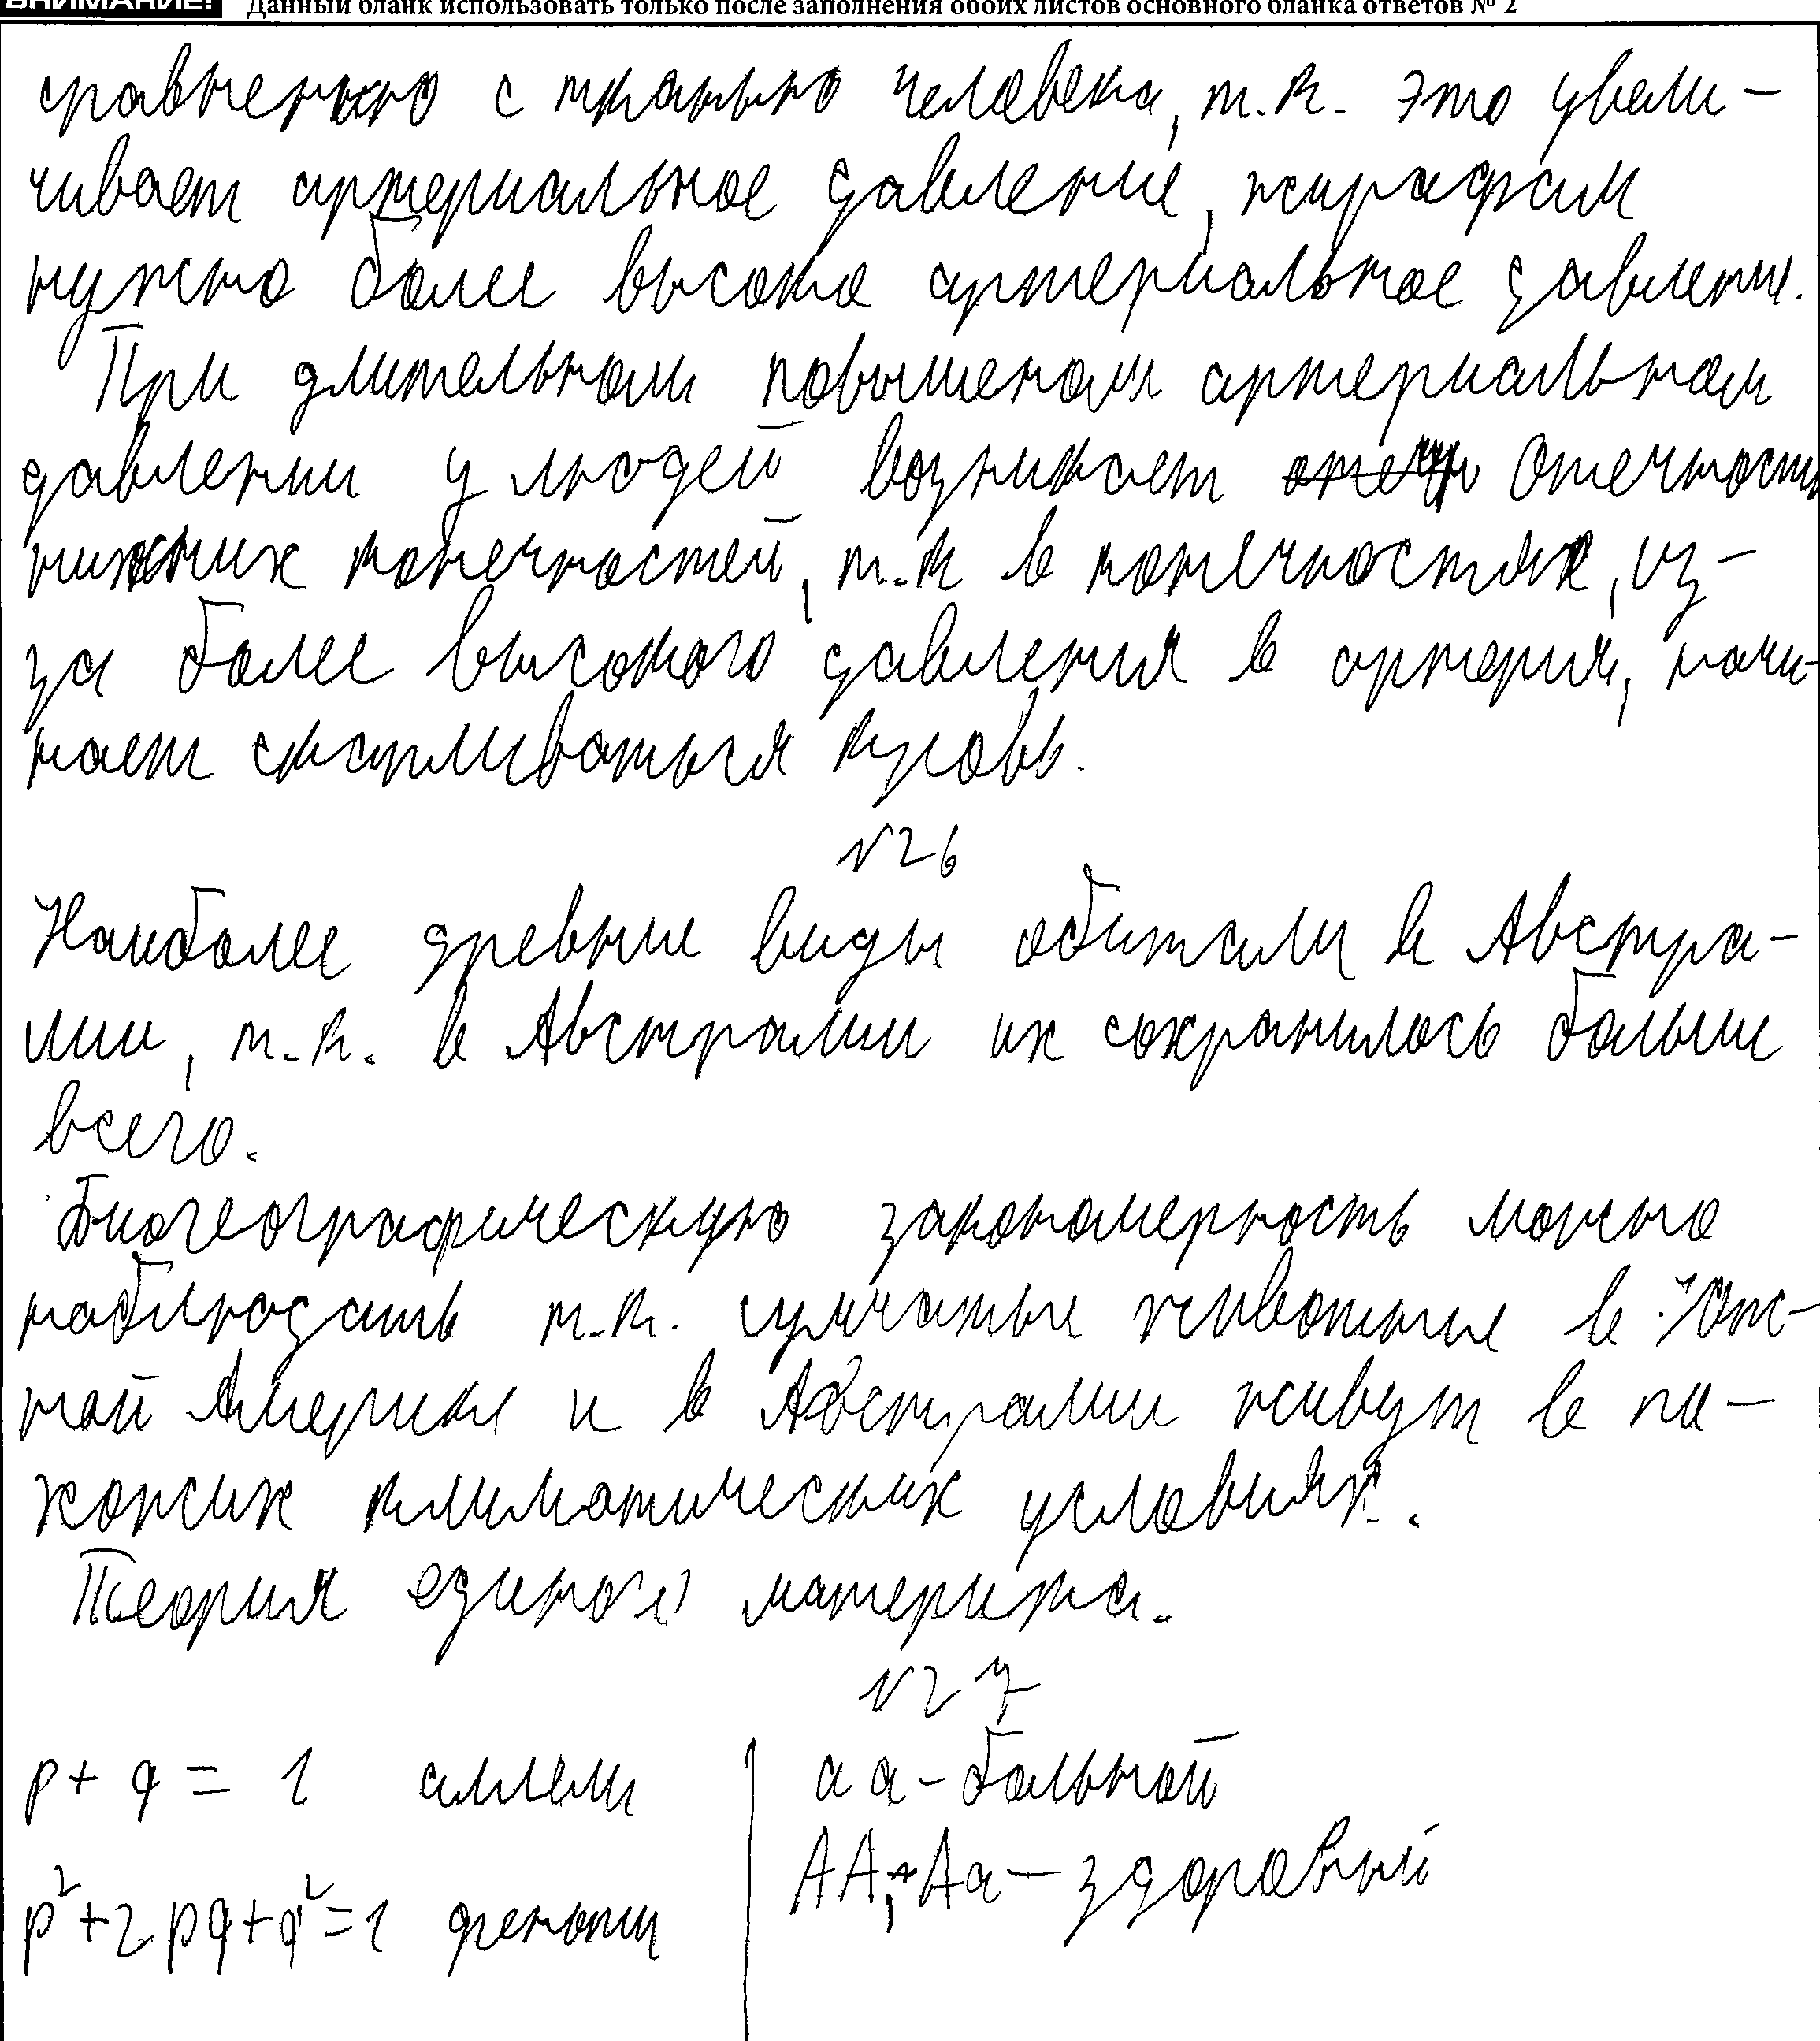 ВНИМАНИЕ! Данный бланк использовать только после заполнения обоих листов основного бланка ответов № 2
сравнению с тканью человека, т.к. это увели-
чивает артериальное давление, жирафам
нужно более высоко артериальное давление.
При длительном повышеном артериальном
давлении у людей возникает отечность
нижних конечностей, т.к в конечностях, из-
за более высокого давления в артерия, начи-
нает скапливаться кровь.
№26
Наиболее древние виды обитали в Австра-
лии, т.к. в Австралии их сохранилось больше
всего.
Биогеографическую закономерность можно
наблюдать т.к. сумчатые животные в Юж-
ной Америке и в Австралии живут в по-
хожих климатических условиях.
Теория единого материка.
№27
p + q = 1 аллели | aa - больной
AA, Aa - здоровый
p²+2pq+q²=1 фенотип